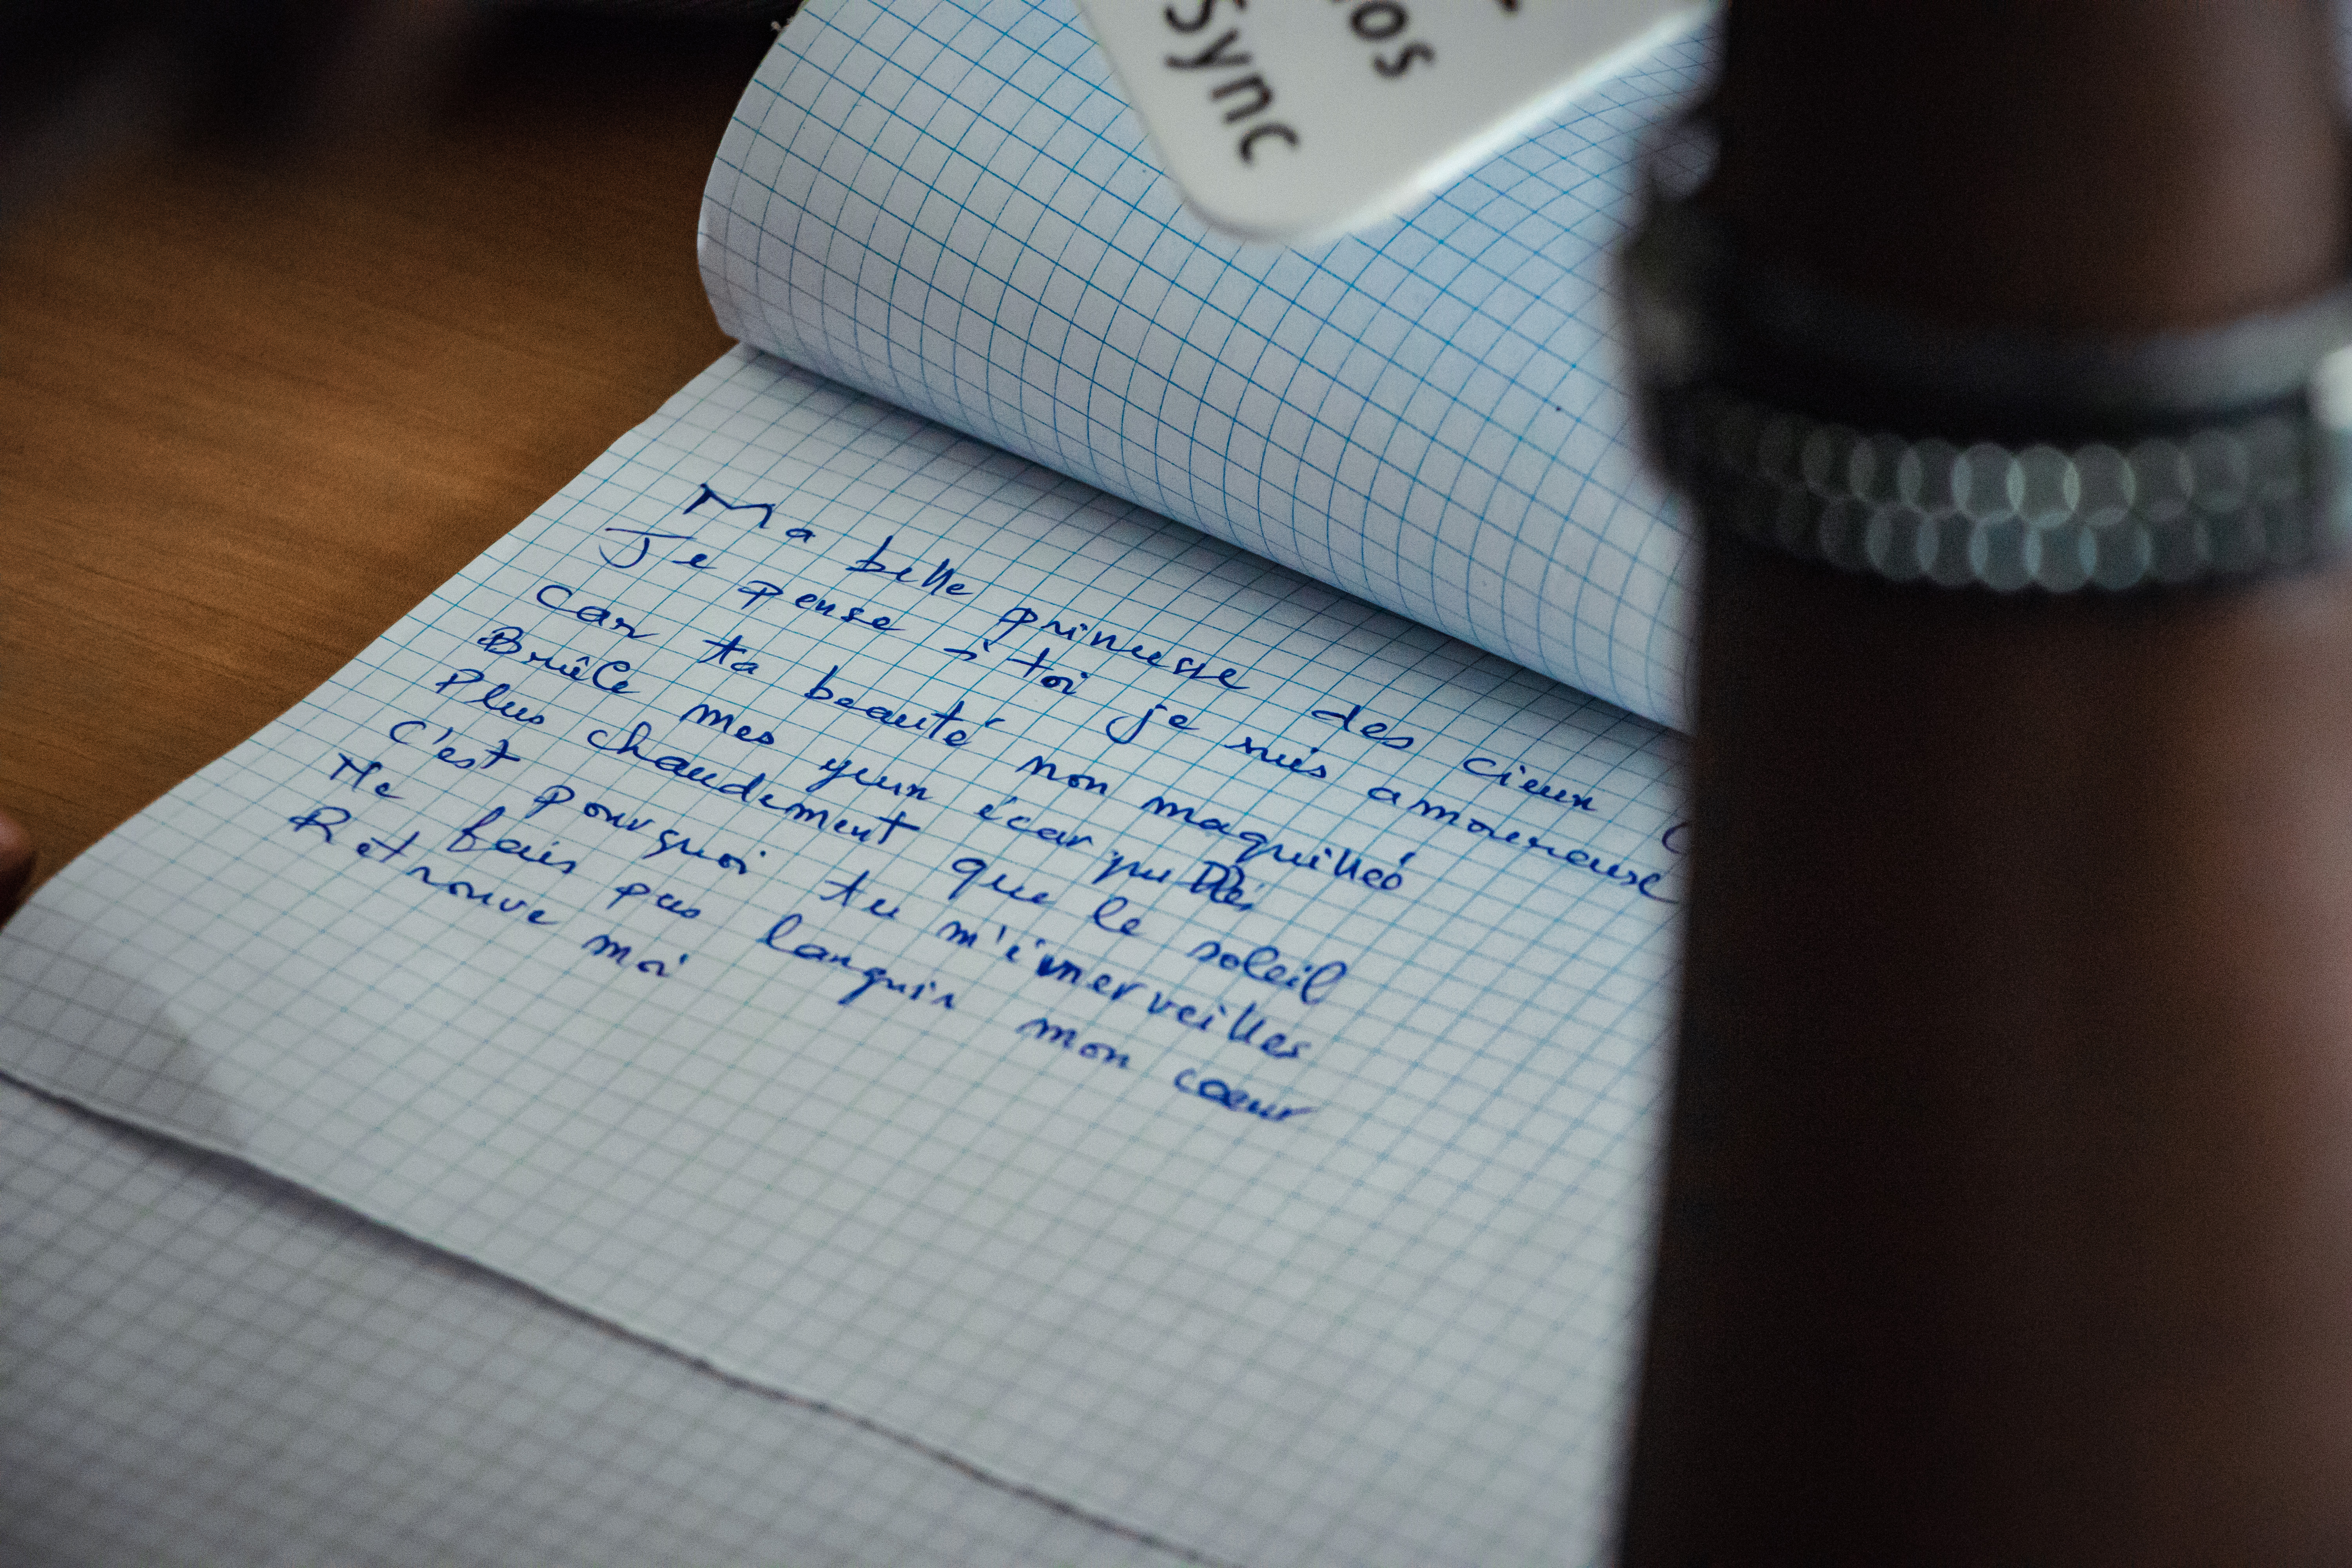 os
Sync
Ma belle princesse des cieux
Je pense à toi je suis amoureuse
Car ta beauté non maquillée
Brûle mes yeux écarquillés
Plus chaudement que le soleil
C'est pourquoi tu m'émerveilles
Ne fais pas languir mon cœur
Retrouve moi